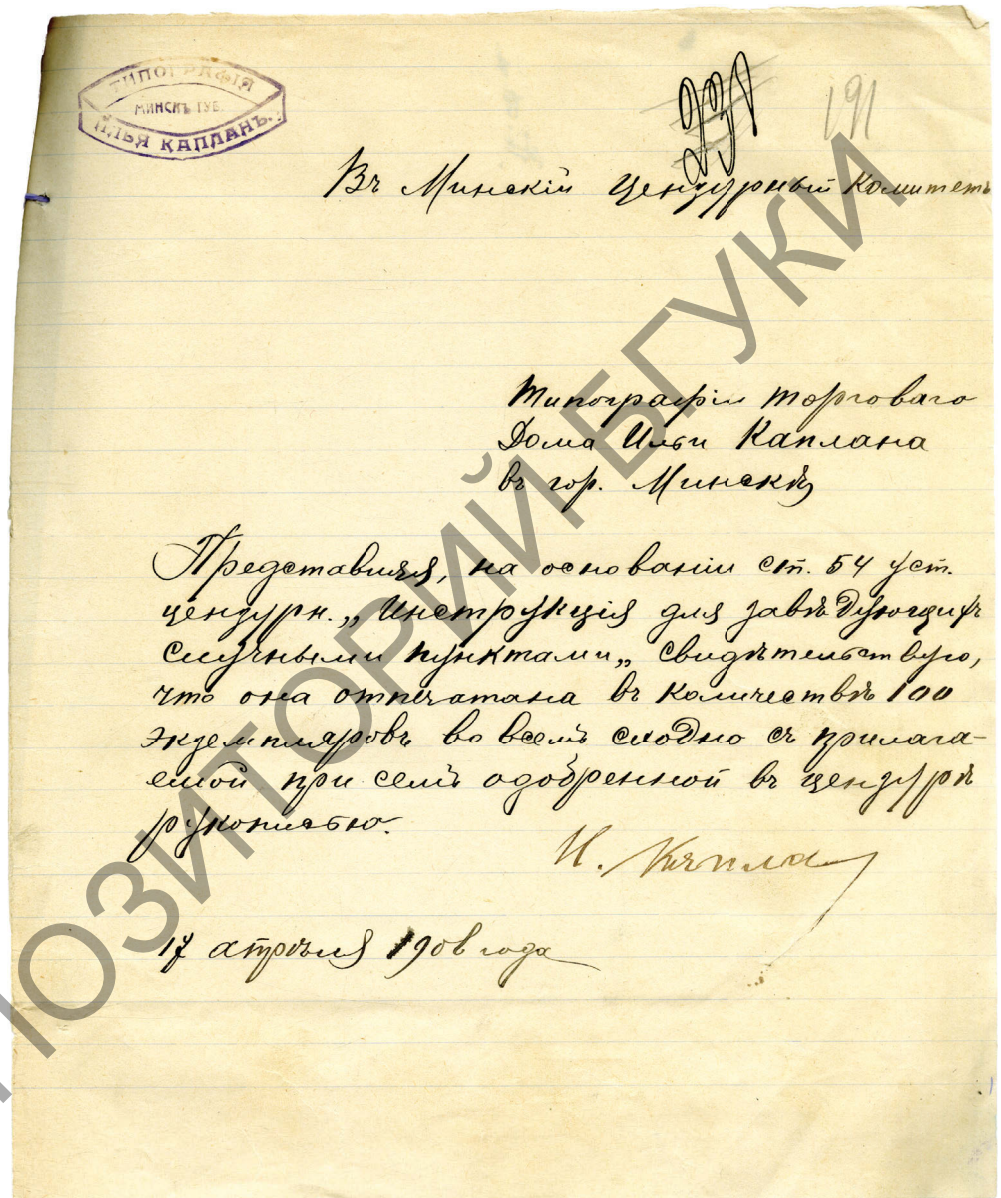 ТИПОГРАФІЯ
МИНСКЪ ГУБ.
ИЛЬЯ КАПЛАНЪ.
231
191
Въ Минскій Цензурный Комитетъ
Типографіи торговаго
Дома Ильи Каплана
въ гор. Минскѣ
Представляя, на основаніи ст. 54 уст.
цензурн. „Инструкція для завѣдующихъ
случными пунктами„ свидѣтельствую,
что она отпечатана въ количествѣ 100
экземпляровъ во всемъ сходно съ прилага-
емой при семъ одобренной въ цензурѣ
рукописью.
И. Каплан
17 апрѣля 1906 года
ПОЗИТОРИЙ БГУКИ